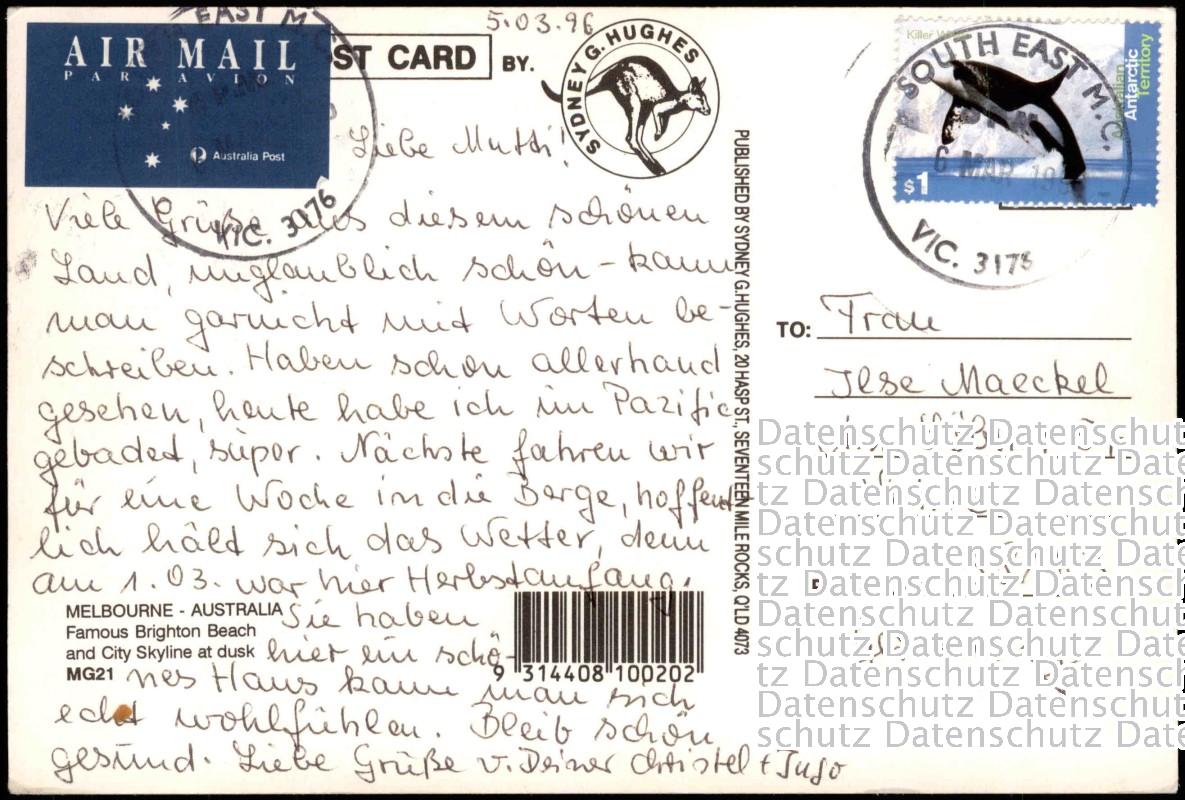 5.03.96
AIR MAIL
PAR AVION
Australia Post
EAST M.C.
VIC. 3176
ST CARD BY.
SYDNEY G. HUGHES
Killer
Australian
Antarctic
Territory
$1
SOUTH EAST M.C.
6 MAR 199
VIC. 3176
Liebe Mutti!
Viele Grüße aus diesem schönen
Land, unglaublich schön - kann
man garnicht mit Worten be-
schreiben. Haben schon allerhand
gesehen, heute habe ich im Pazific
gebadet, super. Nächste fahren wir
für eine Woche in die Berge, hoffent
lich hält sich das Wetter, denn
am 1.03. war hier Herbstanfang.
Sie haben
hier ein schö-
nes Haus kann man sich
echt wohlfühlen. Bleib schön
gesund. Liebe Grüße v. Deiner Christel + Ingo
MELBOURNE - AUSTRALIA
Famous Brighton Beach
and City Skyline at dusk
MG21
9 314408 100202
PUBLISHED BY SYDNEY G.HUGHES, 20 HASP ST., SEVENTEEN MILE ROCKS, Q'LD 4073
TO: Frau
Ilse Maeckel
Datenschutz Datenschut
schutz Datenschutz Date
tz Datenschutz Datensch
Datenschutz Datenschut
schutz Datenschutz Date
tz Datenschutz Datensch
Datenschutz Datenschut
schutz Datenschutz Date
tz Datenschutz Datensch
Datenschutz Datenschut
schutz Datenschutz Date